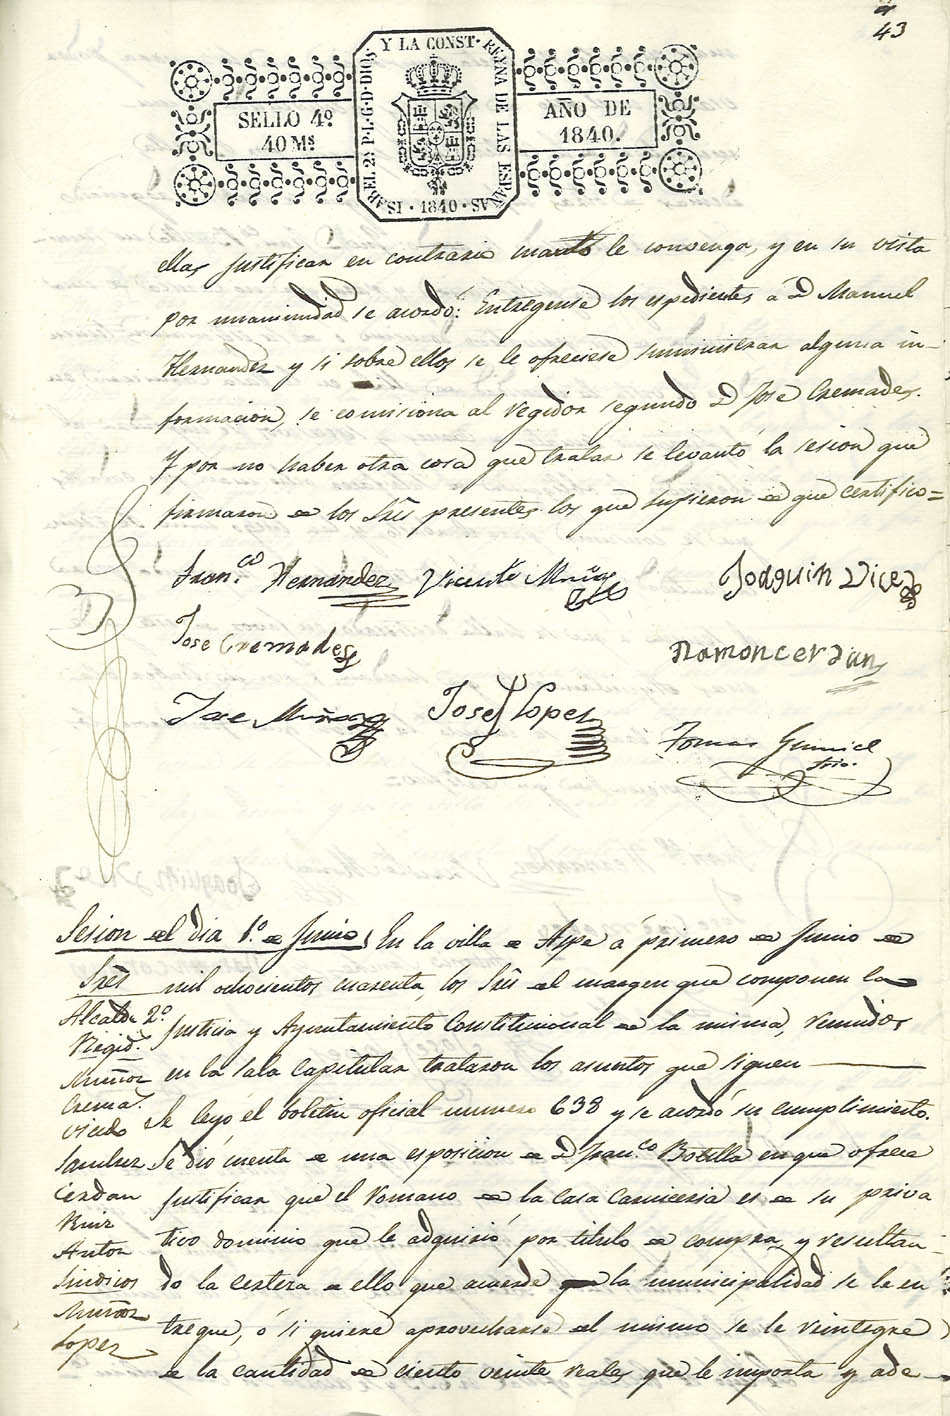 43
SELLO 4º
40 Mˢ
ISABEL 2ª P.L.G.D.DIOS Y LA CONST. REYNA DE LAS ESPAÑAS · 1840 ·
AÑO DE
1840.
ellas justifican en contrario cuanto le convenga, y en su vista
por unanimidad se acordó: Entreguense los espedientes á D Manuel
Hernandez y si sobre ellos se le ofreciese suministrar alguna in-
formacion, se comisiona al regidor segundo D Jose Cremades.
Y por no haber otra cosa que tratar se levantó la sesion que
firmaron de los Sres presentes los que supieron de que certifico=
Franco. Hernandez Vicente Muñoz
Joaquin Vice
Jose Cremades
Ramon cerdan
Jose Muñoz
Jose Lopez
Tomas Gumiel
Srio.
Sesion del dia 1º de Junio En la villa de Aspe á primero de Junio de
Sres mil ochocientos cuarenta, los Sres al margen que componen la
Alcalde 2º Justicia y Ayuntamiento Constitucional de la misma, reunidos
Regidˢ
Muñoz en la sala Capitular trataron los asuntos que siguen
Cremaˢ Se leyó el boletin oficial numero 638 y se acordó su cumplimiento.
Vicedo
Sanchez Se dió cuenta de una esposicion de D Franco. Botella en que ofrece
Cerdan justificar que el romano de la casa carniceria es de su priva
Ruiz
Anton tivo dominio que le adquirió por titulo de compra, y resultan-
Sindicos do la certeza de ello que acuerde la municipalidad se le en
Muñoz tregue, ó si quiere aprovecharse del mismo se le reintegre
Lopez
de la cantidad de ciento veinte reales que le importa y ade